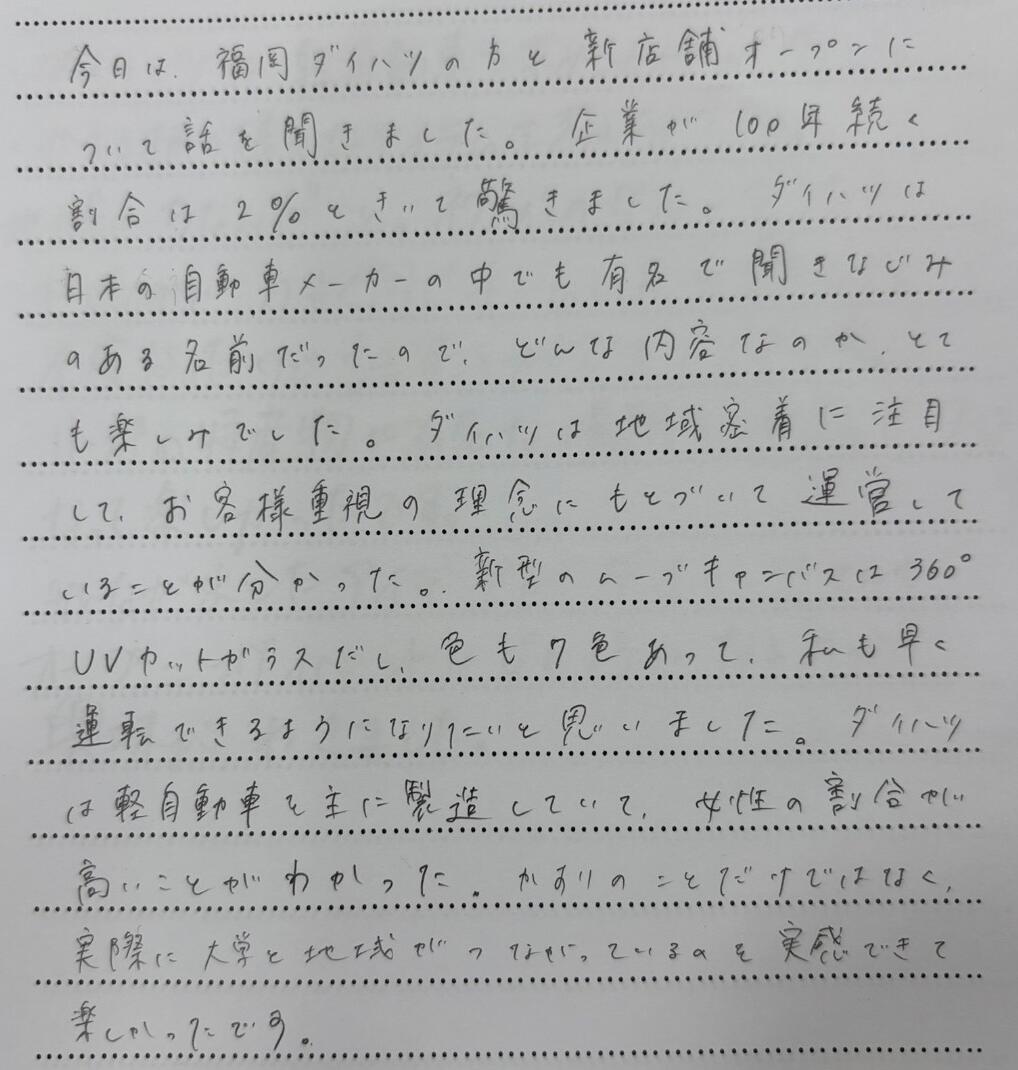 今日は、福岡ダイハツの方と新店舗オープンに
ついて話を聞きました。企業が100年続く
割合は2%ときいて驚きました。ダイハツは
日本の自動車メーカーの中でも有名で聞きなじみ
のある名前だったので、どんな内容なのか、とて
も楽しみでした。ダイハツは地域密着に注目
して、お客様重視の理念にもとづいて運営して
いることが分かった。新型のムーブキャンバスは360°
UVカットガラスだし、色も7色あって、私も早く
運転できるようになりたいと思いました。ダイハツ
は軽自動車を主に製造していて、女性の割合が
高いことがわかった。かすりのことだけではなく、
実際に大学と地域がつながっているのを実感できて
楽しかったです。